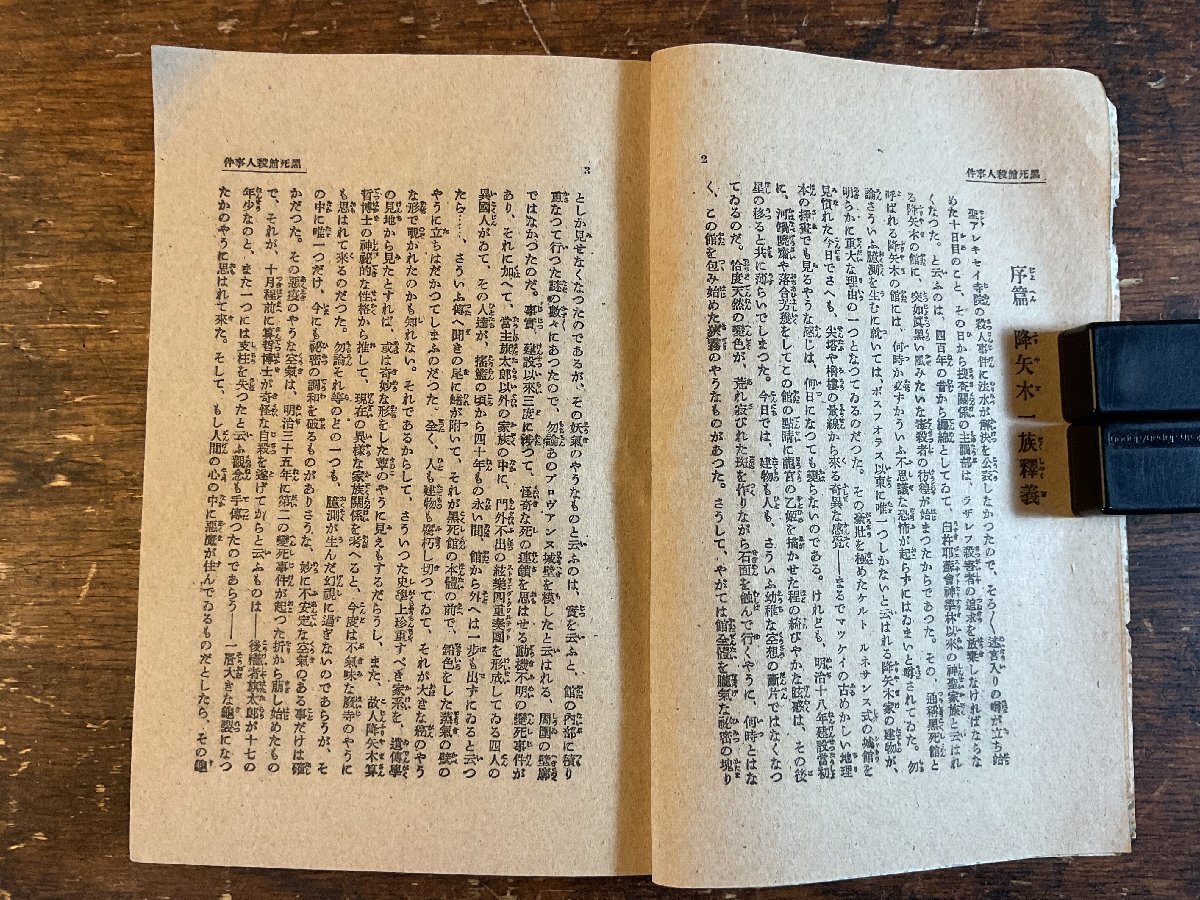 黑死館殺人事件
2
序篇 降矢木一族釋義
聖アレキセイ寺院の殺人事件に法水が解決を公表しなかつたので、そろ〳〵迷宮入りの噂が立ち始
めた十日目のこと、その日から搜査關係の主腦部は、ラザレフ殺害者の追求を放棄しなければならな
くなつた。と云ふのは、四百年の昔から纏綿としてゐて、臼杵耶蘇會神學林以來の神聖家族と云はれ
る降矢木の館に、突如眞黑い風みたいな毒殺者の彷徨が始まつたからであつた。その、通稱黑死館と
呼ばれる降矢木の館には、何時か必ずかういふ不思議な恐怖が起らずにはゐまいと噂されてゐた。勿
論さういふ臆測を生むに就いては、ボスフオラス以東に唯一つしかないと云はれる降矢木家の建物が、
明らかに重大な理由の一つとなつてゐるのだつた。その豪壯を極めたケルト・ルネサンス式の城館を
見慣れた今日でさへも、尖塔や櫓樓の量線から來る奇異な感覺――まるでマツケイの古めかしい地理
本の揷畫でも見るやうな感じは、何日になつても變らないのである。けれども、明治十八年建設當初
に、河鍋曉齋や落合芳幾をしてこの館の點睛に龍宮の乙姬を描かせた程の綺びやかな眩惑は、その後
星の移ると共に薄らいでしまつた。今日では、建物も人も、さういふ幼稚な空想の斷片ではなくなつ
てゐるのだ。恰度天然の變色が、荒れ寂びれた斑を作りながら石面を蝕んで行くやうに、何時とはな
く、この館を包み始めた狹霧のやうなものがあつた。さうして、やがては館全體を朧氣な祕密の塊り
黑死館殺人事件
3
としか見せなくなつたのであるが、その妖氣のやうなものと云ふのは、實を云ふと、館の內部に積り
重なつて行つた謎の數々にあつたので、勿論あのプロヴアンス城壁を模したと云はれる、周圍の壁廓
ではなかつたのだ。事實、建設以來三度に渉つて、怪奇な死の連鎖を思はせる動機不明の變死事件が
あり、それに加へて、當主旗太郎以外の家族の中に、門外不出の絃樂四重奏團を形成してゐる四人の
異國人がゐて、その人達が、搖籃の頃から四十年もの永い間、館から外へは一步も出ずにゐると云つ
たら……、さういふ傳へ聞きの尾に鰭が附いて、それが黑死館の本體の前で、鉛色をした蒸氣の壁の
やうに立ちはだかつてしまふのだつた。全く、人も建物も腐朽し切つてゐて、それが大きな癌のやう
な形で覗かれたのかも知れない。それであるからして、さういつた史學上珍重すべき家系を、遺傳學
の見地から見たとすれば、或は奇妙な形をした蕈のやうに見えもするだらうし、また、故人降矢木算
哲博士の神祕的な性格から推して、現在の異樣な家族關係を考へると、今度は不氣味な廢寺のやうに
も思はれて來るのだつた。勿論それ等のどの一つも、臆測が生んだ幻視に過ぎないのであらうが、そ
の中に唯一つだけ、今にも祕密の調和を破るものがありさうな、妙に不安定な空氣のある事だけは確
かだつた。その惡疫のやうな空氣は、明治三十五年に第二の變死事件が起つた折から萠し始めたもの
で、それが、十月程前に算哲博士が奇怪な自殺を遂げてからと云ふものは――後繼者旗太郎が十七の
年少なのと、また一つには支柱を失つたと云ふ觀念も手傳つたのであらう――一層大きな龜裂になつ
たかのやうに思はれて來た。そして、もし人間の心の中に惡魔が住んでゐるものだとしたら、その龜